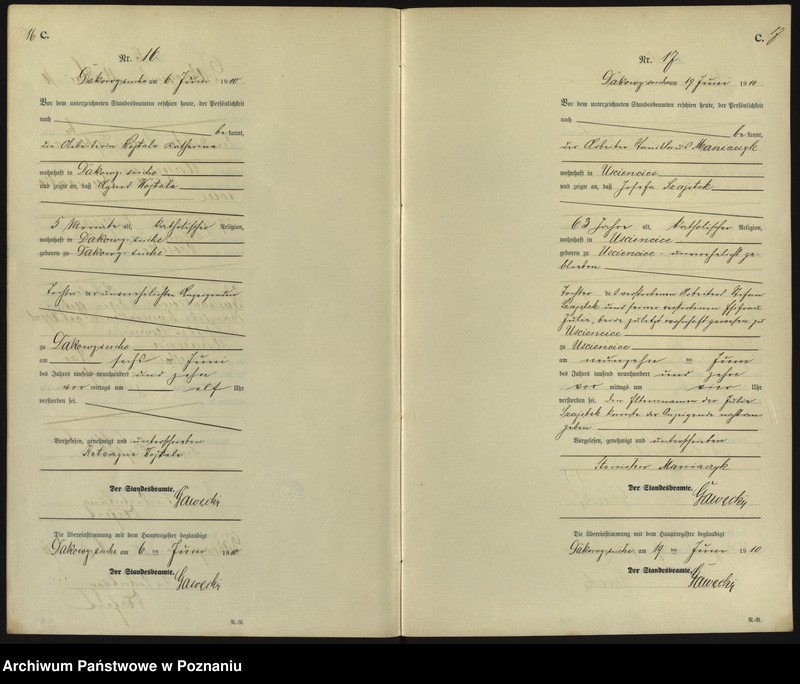 16 C.
Nr. 16.
Dakowy suche am 6. Juni 1910.
Vor dem unterzeichneten Standesbeamten erschien heute, der Persönlichkeit
nach
bekannt,
die Arbeiterin Wojtala Katharina
wohnhaft in Dakowy suche
und zeigte an, daß Agnes Wojtala
5 Monate alt, katholischer Religion,
wohnhaft in Dakowy suche
geboren zu Dakowy suche
Tochter der unverehelichten Anzeigenden
zu Dakowy suche
am sechs ten Juni
des Jahres tausend neunhundert und zehn
vor mittags um elf Uhr
verstorben sei.
Vorgelesen, genehmigt und unterschrieben
Katarzyna Wojtala
Der Standesbeamte.
Gawęcki
Die Übereinstimmung mit dem Hauptregister beglaubigt
Dakowy suche am 6 ten Juni 1910
Der Standesbeamte.
Gawęcki
R.-R.
C. 17
Nr. 17.
Dakowy suche am 19 Juni 1910.
Vor dem unterzeichneten Standesbeamten erschien heute, der Persönlichkeit
nach
bekannt,
der Arbeiter Stanislaus Maniaczyk
wohnhaft in Usciencice
und zeigte an, daß Josefa Szajstek
63 Jahre alt, katholischer Religion,
wohnhaft in Usciencice
geboren zu Usciencice unverehelicht ge-
blieben
Tochter des verstorbenen Arbeiters Stefan
Szajstek und seiner verstorbenen Ehefrau
Julie, beide zuletzt wohnhaft gewesen zu
Usciencice
zu Usciencice
am neunzehn ten Juni
des Jahres tausend neunhundert und zehn
vor mittags um vier Uhr
verstorben sei. Den Elternnamen der Julie
Szajstek konnte der Anzeigende nicht an-
geben
Vorgelesen, genehmigt und unterschrieben
Stanisław Maniaczyk
Der Standesbeamte.
Gawęcki
Die Übereinstimmung mit dem Hauptregister beglaubigt
Dakowy suche am 19 ten Juni 1910
Der Standesbeamte.
Gawęcki
R.-R.
Archiwum Państwowe w Poznaniu